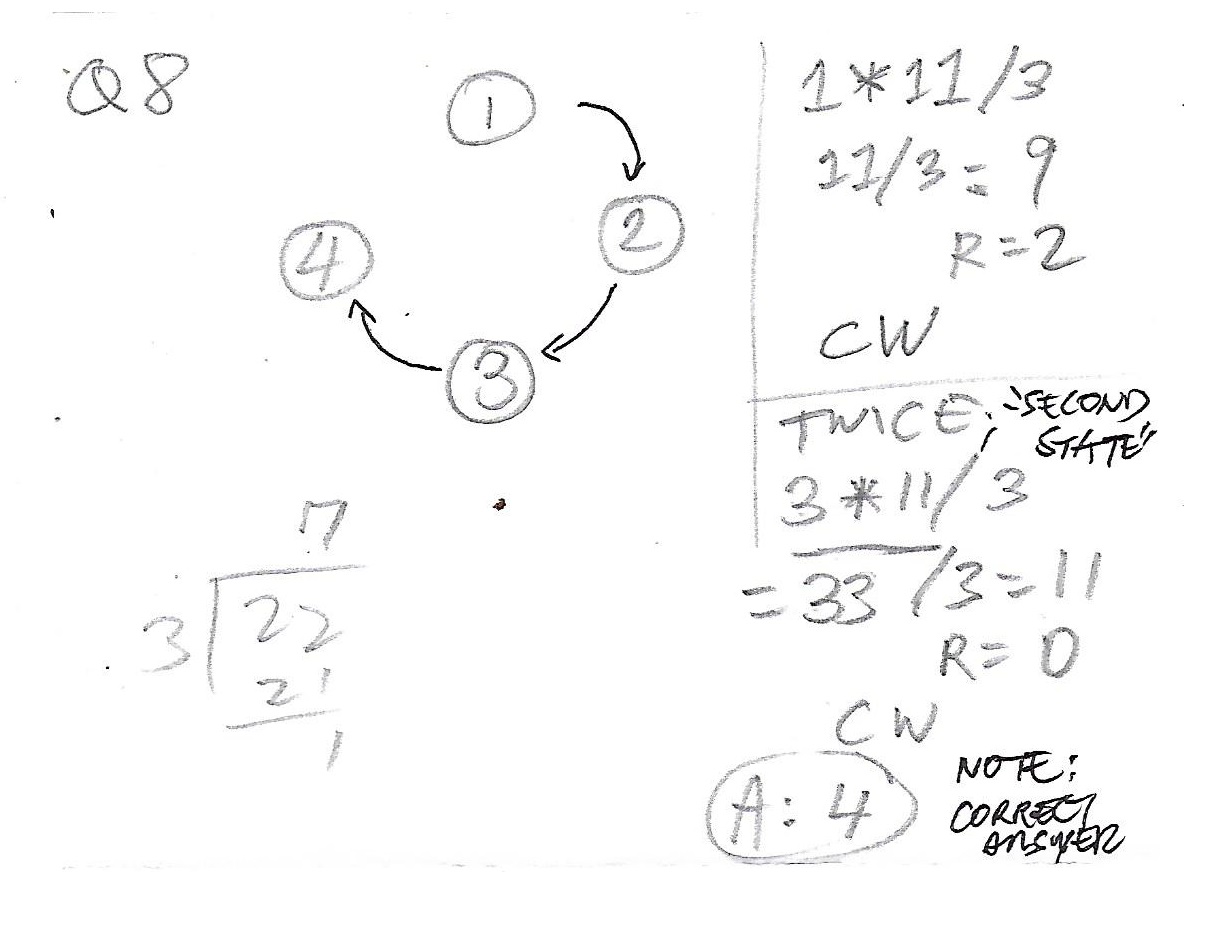 Q8
1
2
3
4
7
3 22
21
1
1*11/3
11/3 = 9
R=2
CW
TWICE: "SECOND
STATE"
3*11/3
= 33/3 = 11
R= 0
CW
A: 4
NOTE:
CORRECT
ANSWER